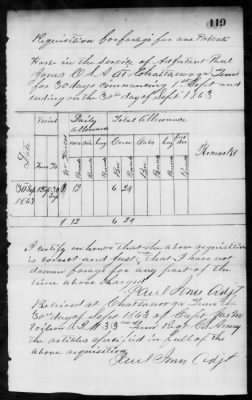 119
Requisition for forage for one Private
Horse in the Service of Adjutant Paul
Jones C S A at Chattanooga Tenn
for 30 days commencing 1st Sept and
ending on the 30th day of Sept 1863
Date
Period
From To
No of Horses
Daily allowance
Total Allowance
Corn Oats Hay
Remarks
30 Sept 1863 1 Sept 30 Sep 1 12 6 24
1 12 6 24
I certify on honor that the above requisition
is correct and just, that I have not
drawn forage for any part of the
time above charged
Paul Jones Adjt
Received at Chattanooga Tenn on
30th day of Sept 1863 of Capt
A Q M 33rd Tenn Regt CS Army
the articles specified in full of the
above requisition
Paul Jones Adjt